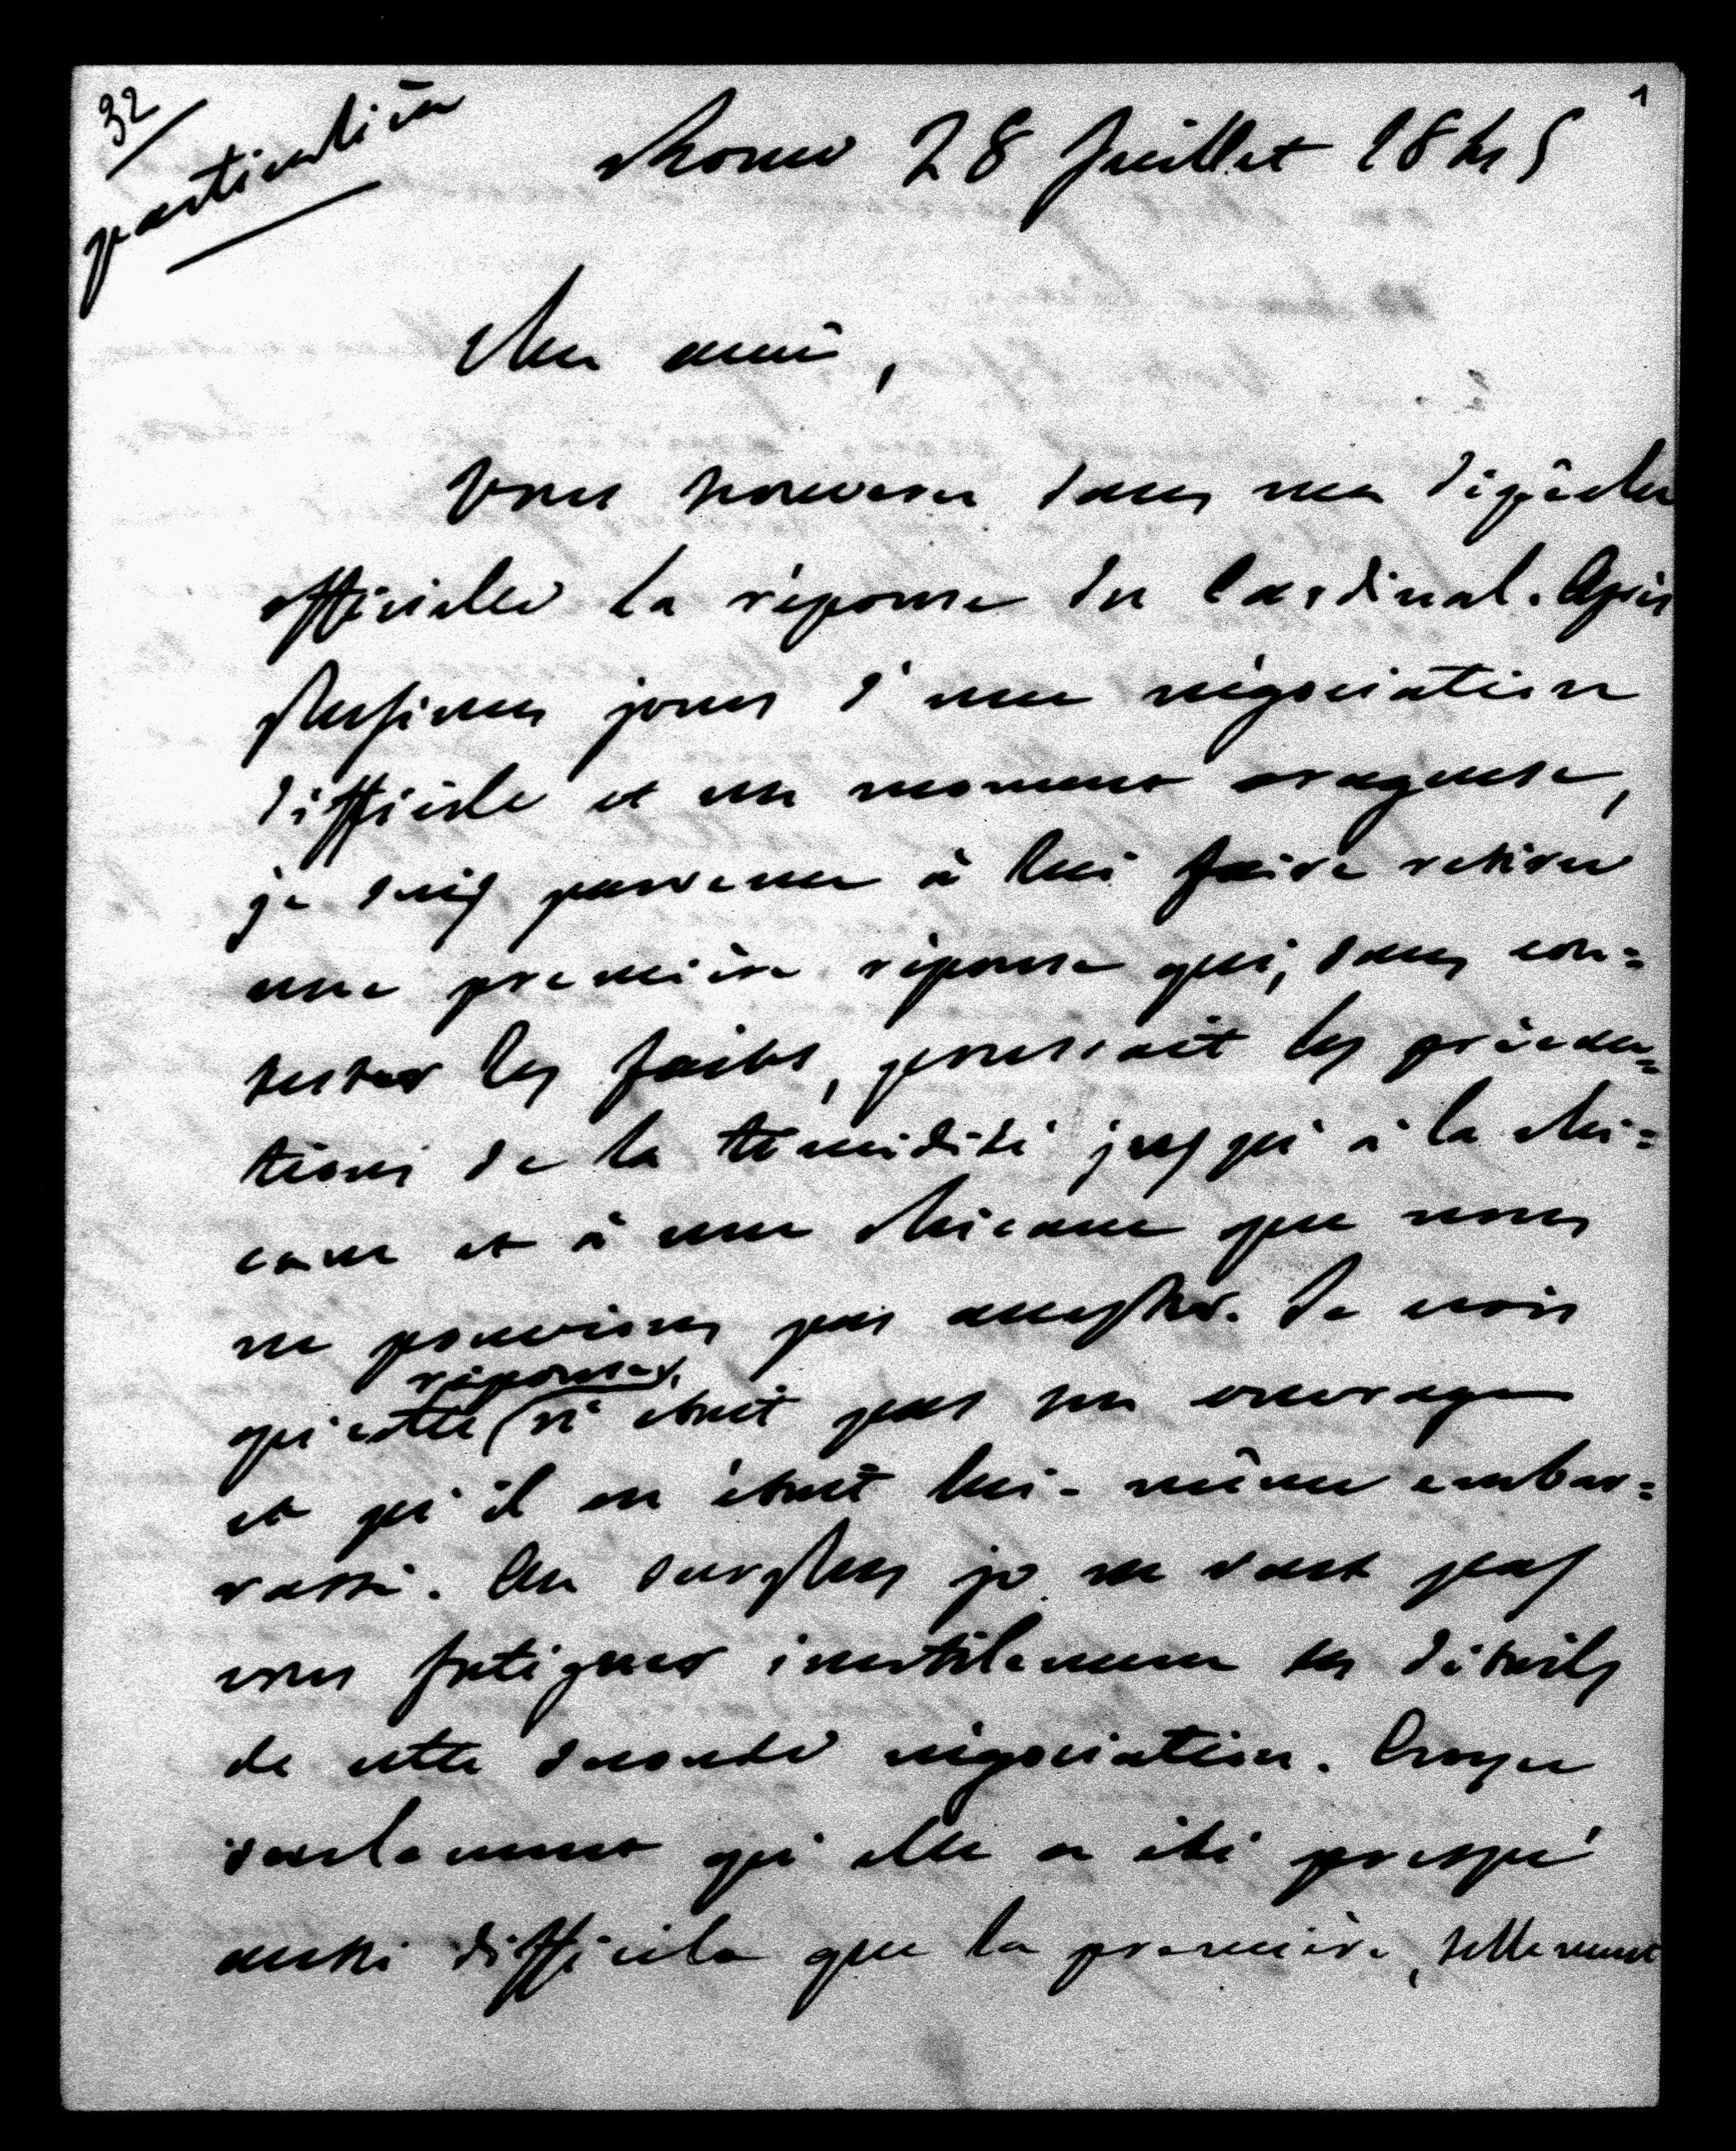 32
1
particulière
Rome 28 Juillet 1845
Cher ami,
Vous trouverez dans ma dépêche
officielle la réponse du Cardinal. Après
plusieurs jours d'une négociation
difficile et un moment orageuse,
je suis parvenu à lui faire retirer
une première réponse qui, sans con=
tester les faits, poussait les précau=
tions de la timidité jusqu'à la chi=
cane et à une chicane que nous
ne pouvions pas accepter. Je crois
réponse
que cette n'était pas son ouvrage
et qu'il en était lui-même embar=
rassé. Au surplus je ne veux pas
vous fatiguer inutilement des détails
de cette seconde négociation. Croyez
seulement qu'elle a été presque
aussi difficile que la première, tellement